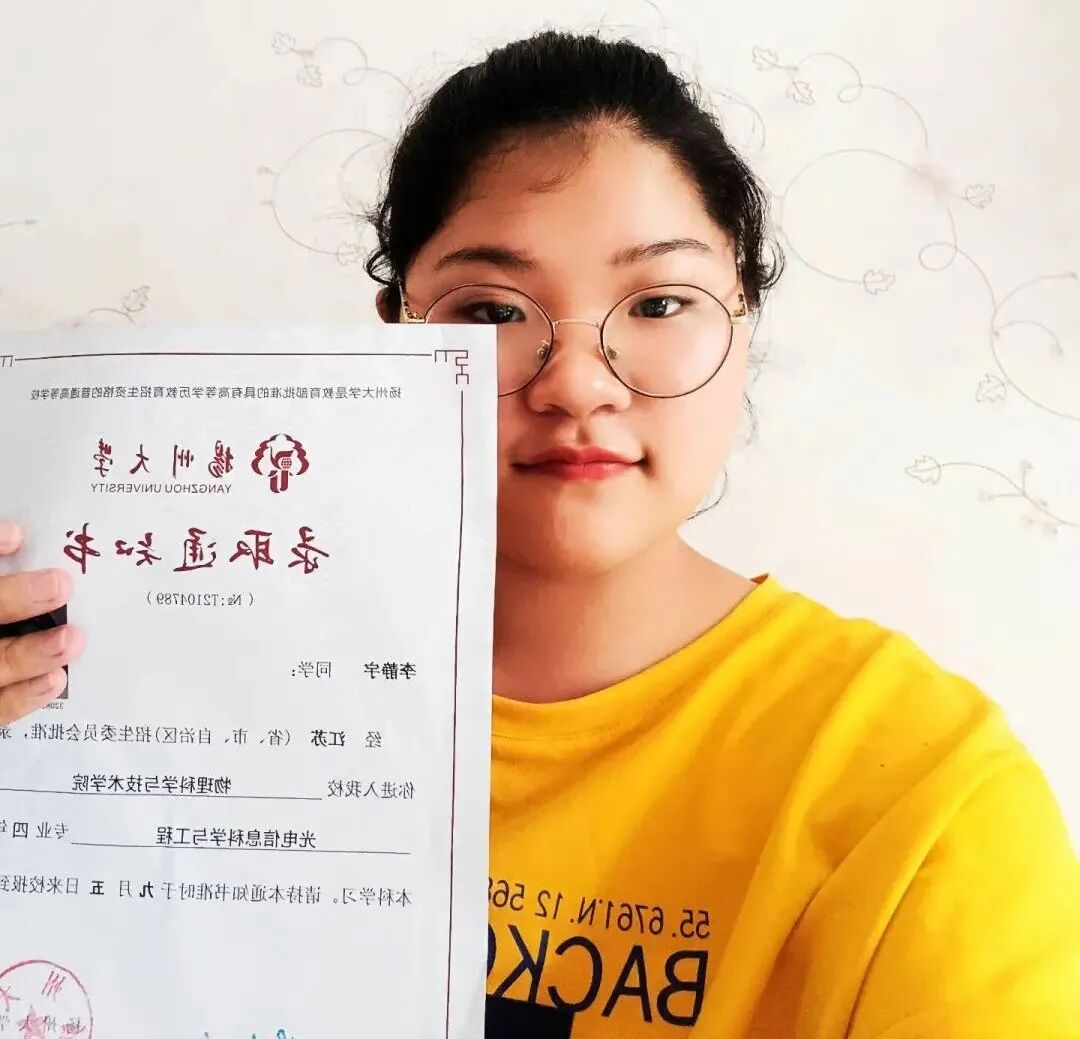 扬州大学是教育部批准的具有高等学历教育招生资格的普通高等学校
扬州大学
YANGZHOU UNIVERSITY
录取通知书
（№:T2104789）
李静宇 同学：
3208
经 江苏 （省、市、自治区）招生委员会批准，录
你进入我校 物理科学与技术学院
光电信息科学与工程 专业 四 年
本科学习。请持本通知书准时于 九 月 五 日来校报到
55.6761°N.12 568
BACK